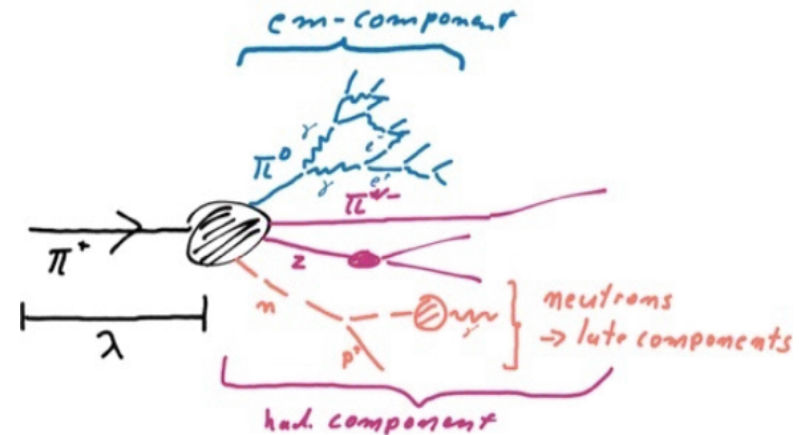 em-component
γ
π⁰
γ
e⁻
e⁺
π⁺/⁻
π⁺
z
n
γ
p⁺
λ
neutrons
→ late components
had. component